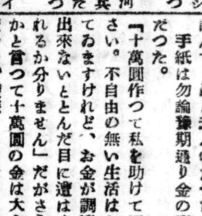 手紙は勿論豫期通り金の
だつた。
『十萬圓作つて私を助けて
さい。不自由の無い生活は
てゐますけれど、お金が調
出來ないととんだ目に遭は
れるか分りません」だがさ
かと言つて十萬圓の金は大